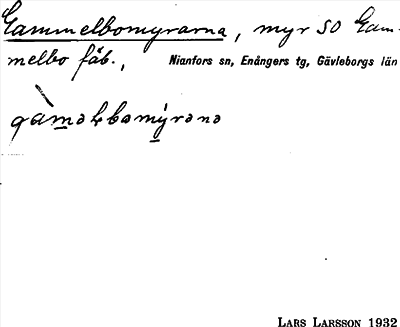 Gammelbomyrarna, myr SO Gam-
melbo fäb., Nianfors sn, Enångers tg, Gävleborgs län
gàməlbomýrəna
LARS LARSSON 1932